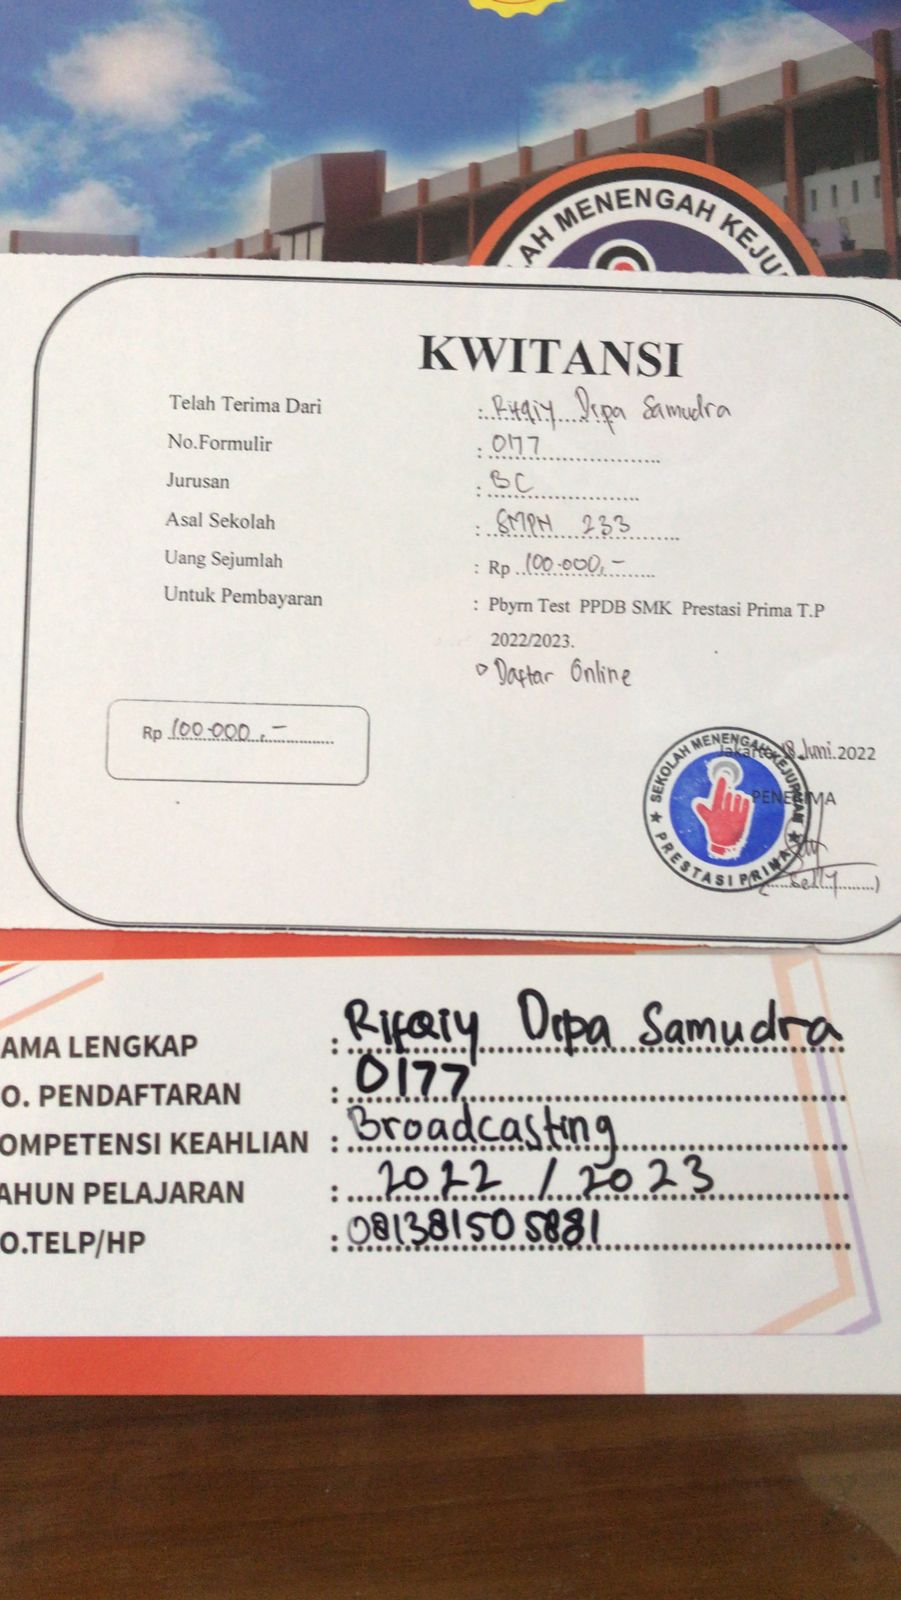 LAH MENENGAH KEJU
KWITANSI
Telah Terima Dari : Rifqiy Dipa Samudra
No.Formulir : 0177
Jurusan : BC
Asal Sekolah : SMPN 233
Uang Sejumlah : Rp 100.000,-
Untuk Pembayaran : Pbyrn Test PPDB SMK Prestasi Prima T.P
2022/2023.
Daftar Online
Rp 100.000,-
Jakarta 18 Juni 2022
PENERIMA
SEKOLAH MENENGAH KEJURUAN
PRESTASI PRIMA
(Selly)
AMA LENGKAP : Rifqiy Dipa Samudra
O. PENDAFTARAN : 0177
OMPETENSI KEAHLIAN : Broadcasting
AHUN PELAJARAN : 2022 / 2023
O.TELP/HP : 081381505881